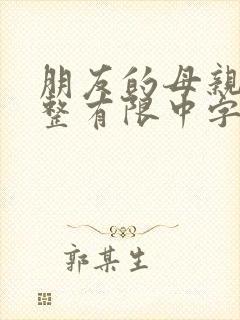 朋友的母親
整有限中字
郭某生